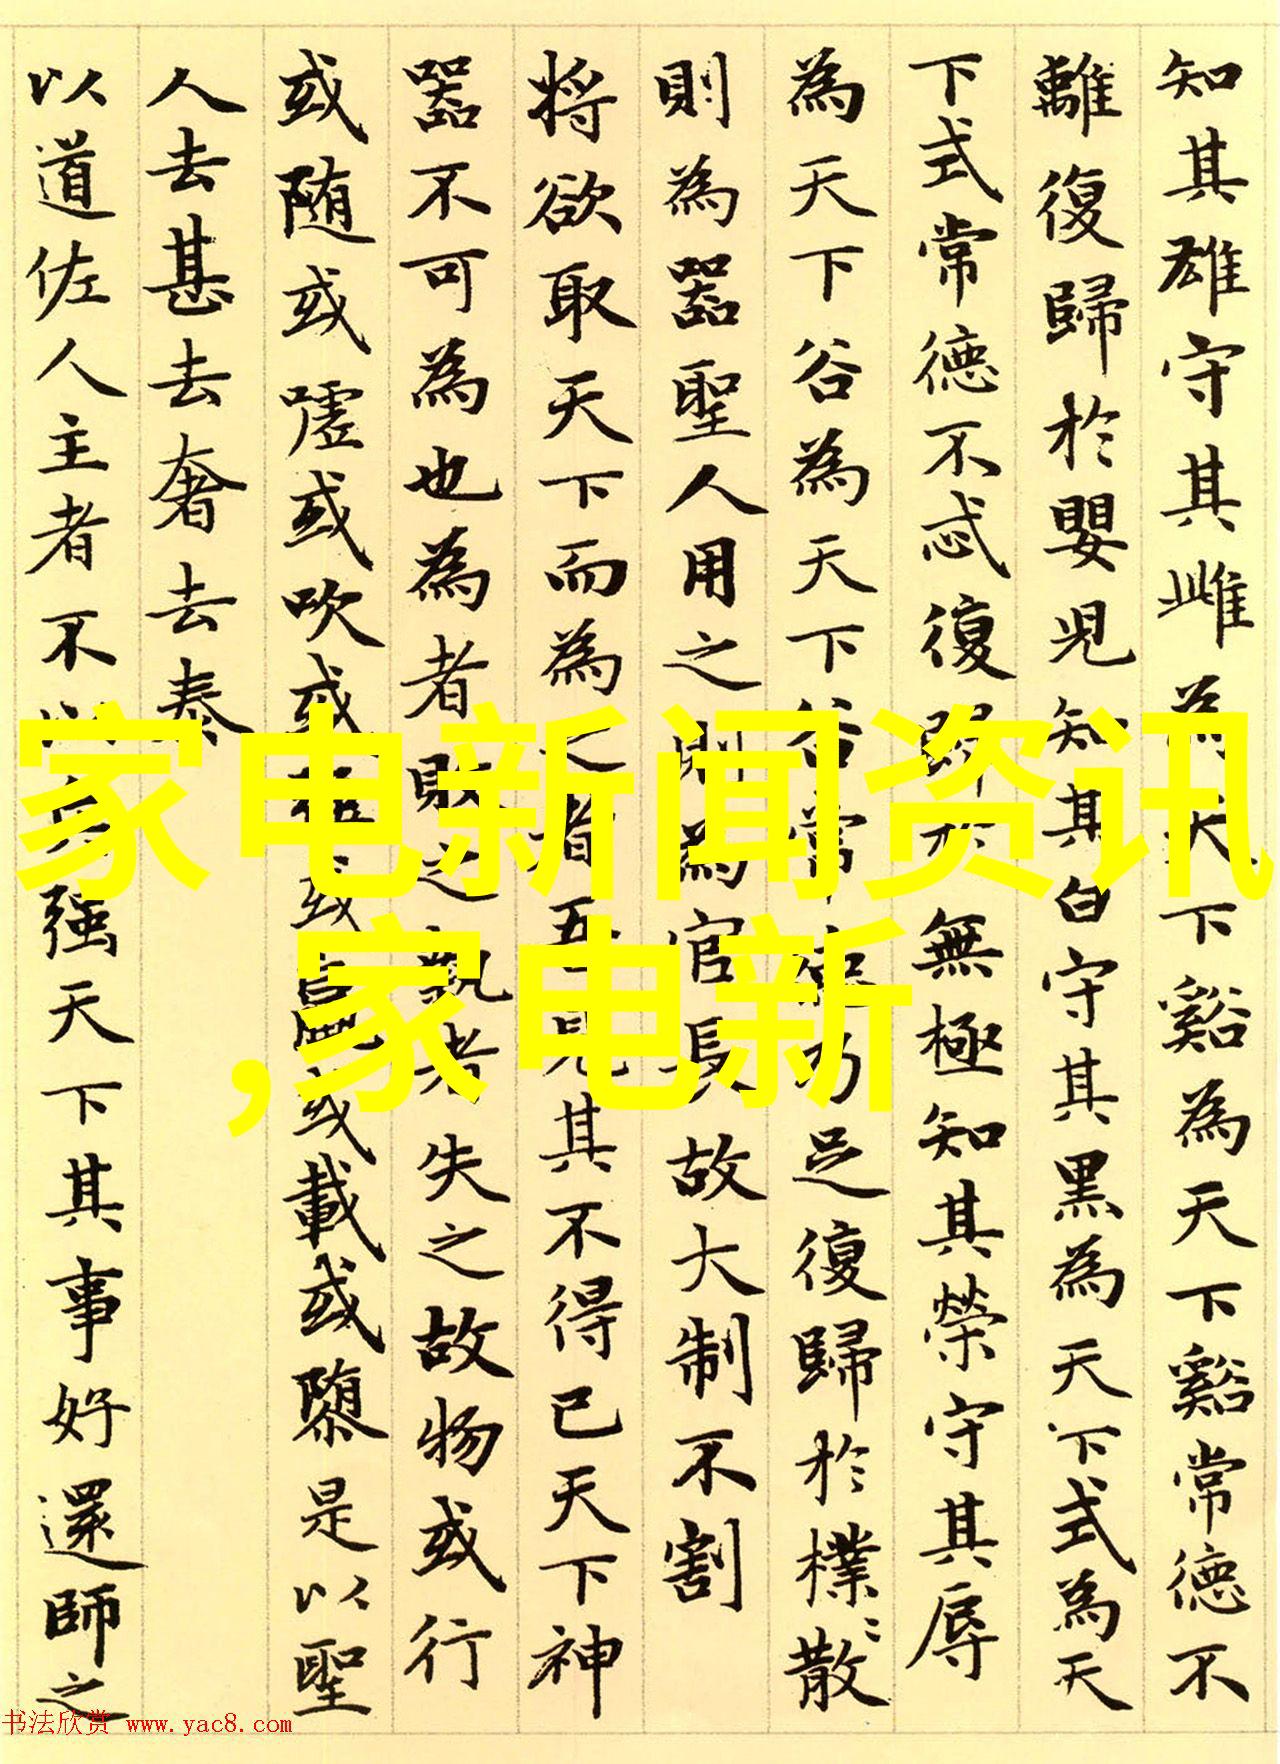 知其雄守其雌為天下谿為天下谿常德不
離復歸於嬰児知其白守其黑為天下式為天
下式常德不忒復歸於無極知其榮守其辱
為天下谷為天下谷常德乃足復歸於樸〻散
則為器聖人用之則為官長故大制不割
将欲取天下而為之者吾見其不得已天下神
器不可為也為者敗之執者失之故物或行
或随或嘘或吹或或載或隳是以聖
人去甚去奢去泰
以道佐人主者不以兵强天下其事好還師之
家电新闻资讯
,家电新
书法欣赏 www.yac8.com